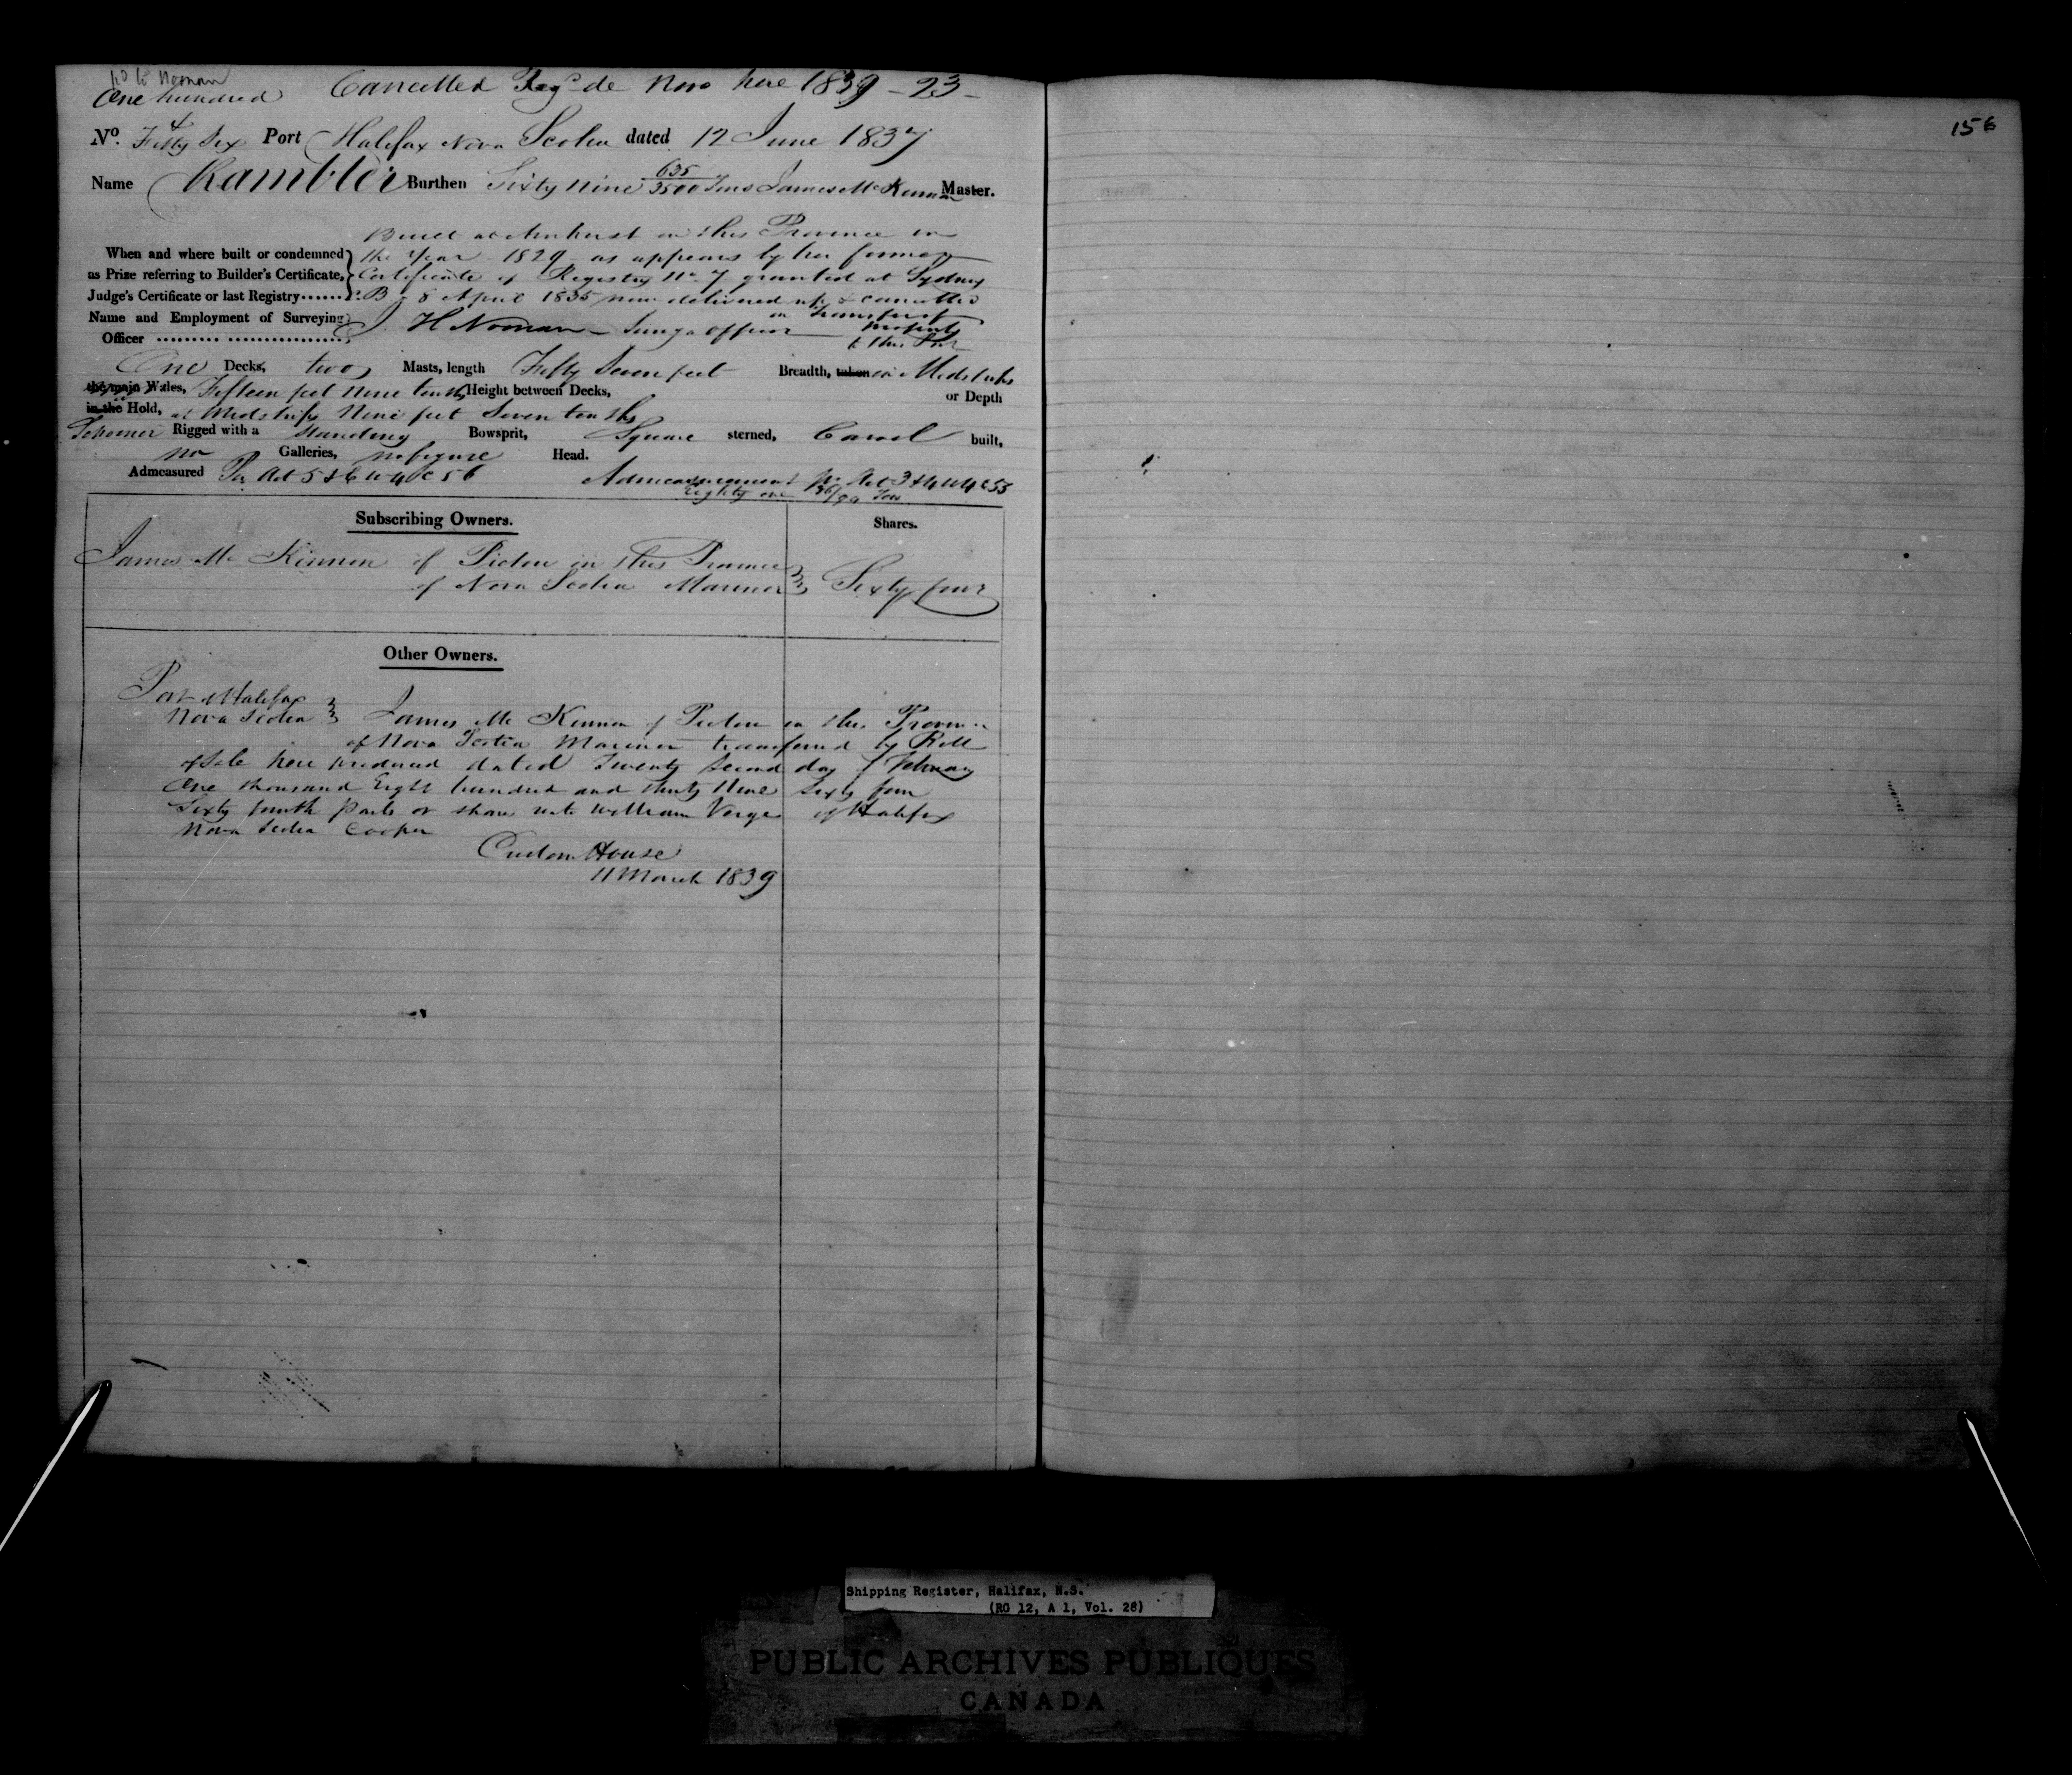 Cancelled Regd de Novo here 1839 - 23 -
One hundred
&
No. Fifty Six Port Halifax Nova Scotia dated 12 June 1837
156
Name Rambler Burthen Sixty Nine 635/3500 Tons James Mc Kinnon Master.
Built at Amherst in this Province in
the Year 1829 as appears by her former
Certificate of Registry No. 7 granted at Sydney
C.B. 8 April 1835 now delivered up & cancelled
on transfer of
property
to this Port
When and where built or condemned
as Prize referring to Builder's Certificate,
Judge's Certificate or last Registry
Name and Employment of Surveying
Officer J H Noonan Survg Officer
One Decks, two Masts, length Fifty Seven feet Breadth, taken in Midships
the main Wales, Fifteen feet Nine tenths Height between Decks, or Depth
in the Hold, at Midships Nine feet Seven tenths
Schooner Rigged with a Standing Bowsprit, Square sterned, Carvel built,
no Galleries, no figure Head.
Admeasured Per Act 5 & 6 W 4 C 56 Admeasurement Per Act 3 & 4 W 4 C 55
Eighty one Tons
Subscribing Owners. Shares.
James Mc Kinnon of Pictou in this Province
of Nova Scotia Mariner Sixty four
Other Owners.
Port of Halifax
Nova Scotia James Mc Kinnon of Pictou in this Province
of Nova Scotia Mariner transferred by Bill
of Sale here produced dated Twenty Second day of February
One thousand Eight hundred and thirty Nine Sixty four
Sixty fourth parts or shares unto William Verge of Halifax
Nova Scotia Cooper
Custom House
11 March 1839
Shipping Register, Halifax, N.S.
(RG 12, A 1, Vol. 28)
PUBLIC ARCHIVES PUBLIQUES
CANADA